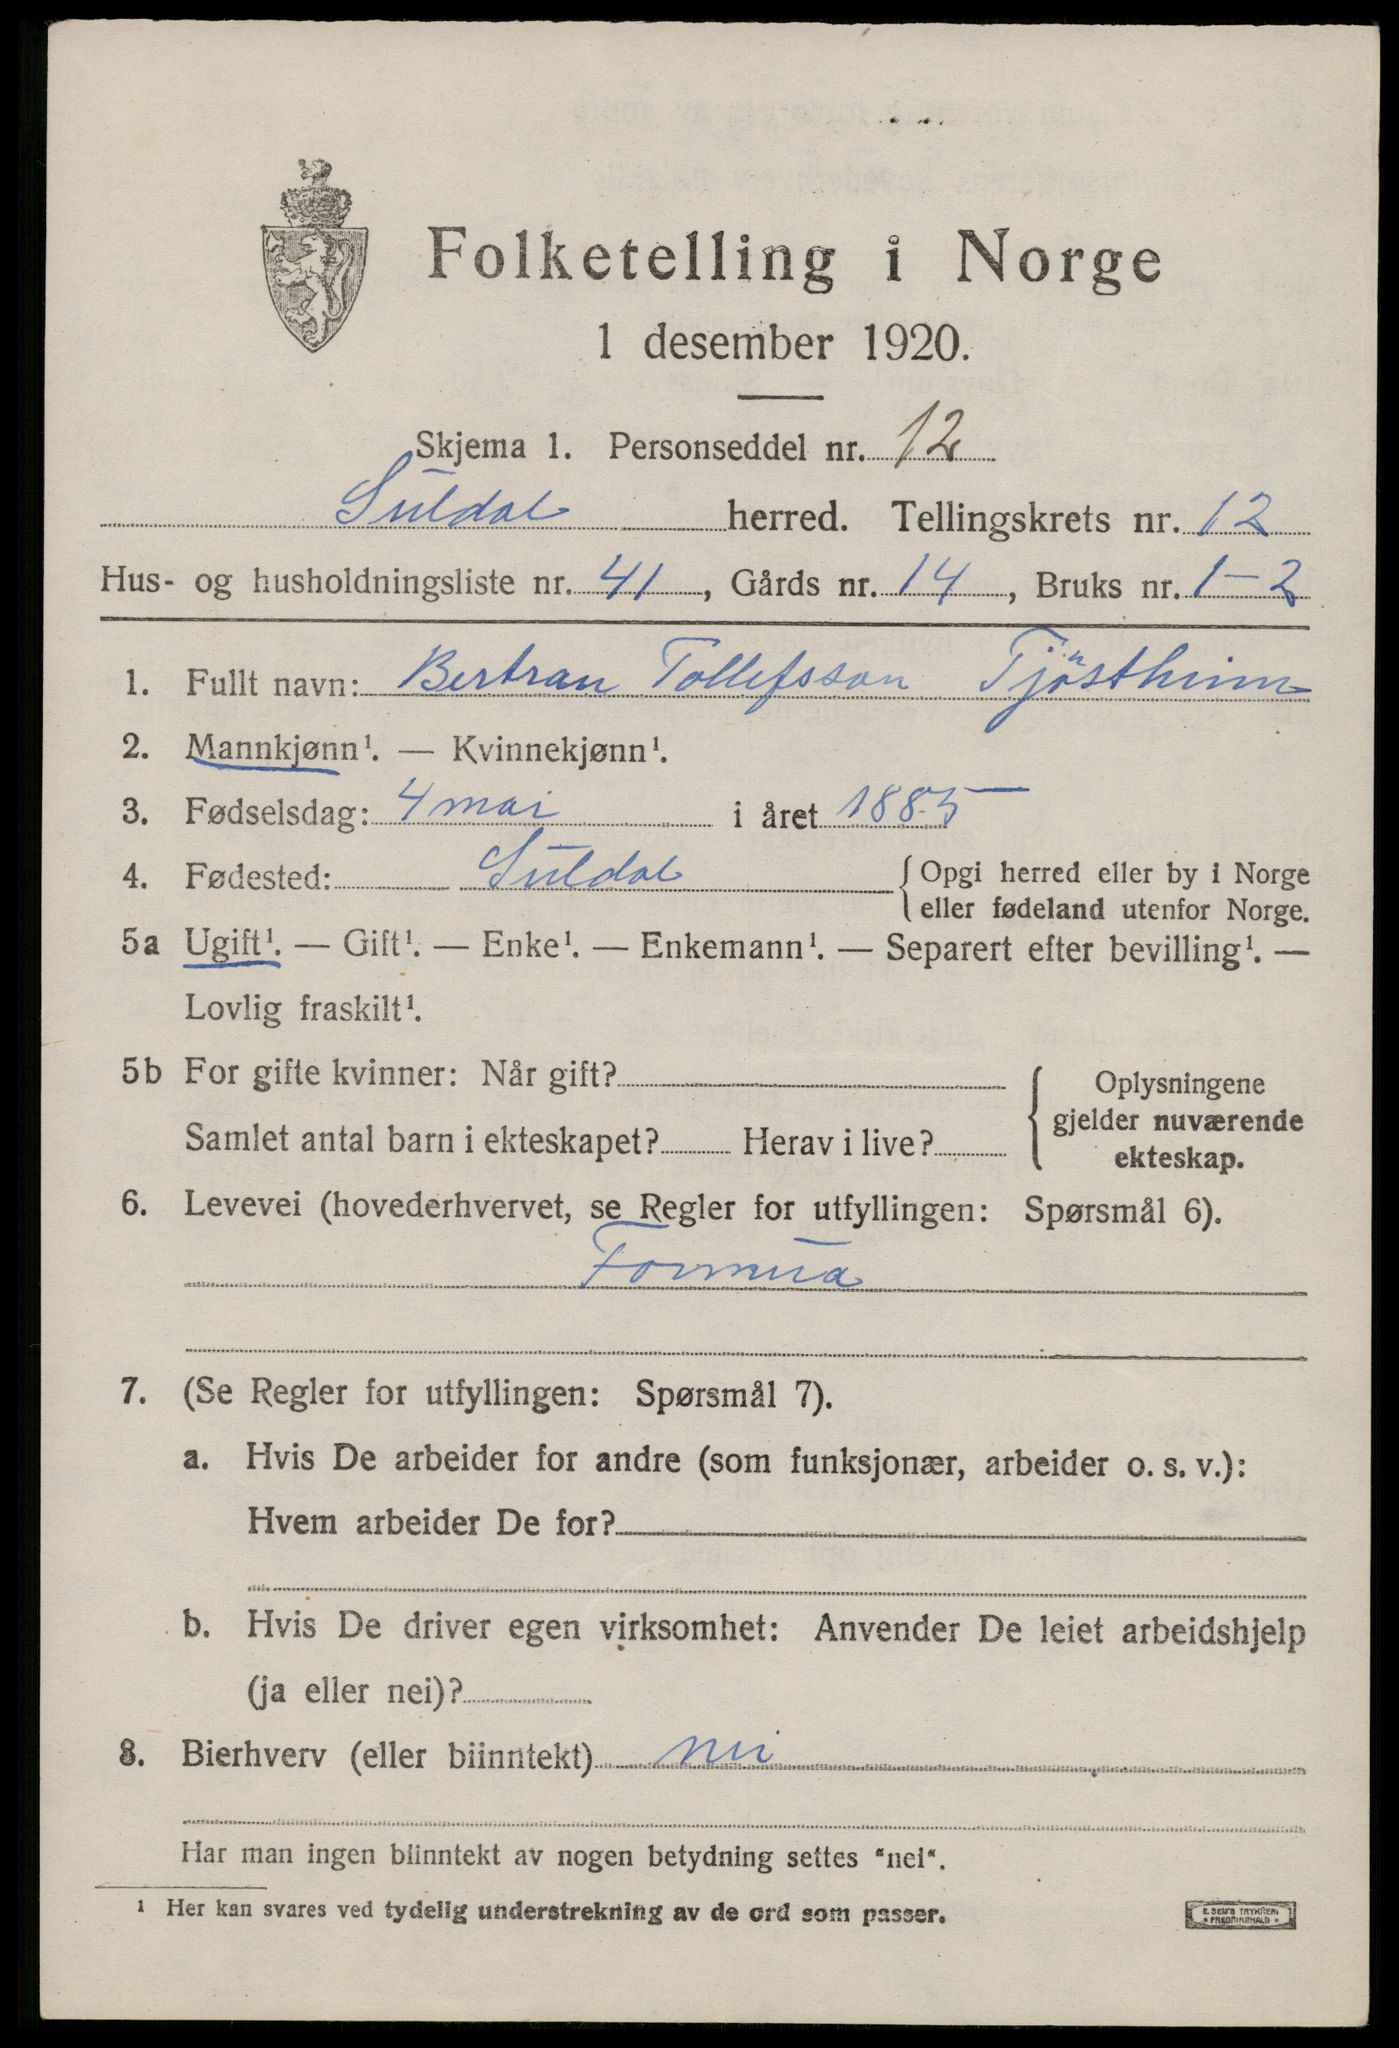 Folketelling i Norge
1 desember 1920.
Skjema 1. Personseddel nr. 12
Suldal herred. Tellingskrets nr. 12
Hus- og husholdningsliste nr. 41, Gårds nr. 14, Bruks nr. 1-2
1. Fullt navn: Bertran Tollefsson Tjöstheim
2. Mannkjønn¹. — Kvinnekjønn¹.
3. Fødselsdag: 4 mai i året 1885
4. Fødested: Suldal { Opgi herred eller by i Norge
eller fødeland utenfor Norge.
5a Ugift¹. — Gift¹. — Enke¹. — Enkemann¹. — Separert efter bevilling¹. —
Lovlig fraskilt¹.
5b For gifte kvinner: Når gift?
Samlet antal barn i ekteskapet? Herav i live?
{ Oplysningene
gjelder nuværende
ekteskap.
6. Levevei (hovederhvervet, se Regler for utfyllingen: Spørsmål 6).
Formua
7. (Se Regler for utfyllingen: Spørsmål 7).
a. Hvis De arbeider for andre (som funksjonær, arbeider o. s. v.):
Hvem arbeider De for?
b. Hvis De driver egen virksomhet: Anvender De leiet arbeidshjelp
(ja eller nei)?
8. Bierhverv (eller biinntekt) nei
Har man ingen biinntekt av nogen betydning settes "nei".
¹ Her kan svares ved tydelig understrekning av de ord som passer.
E. SEM'S TRYKKERI
FREDRIKSHALD